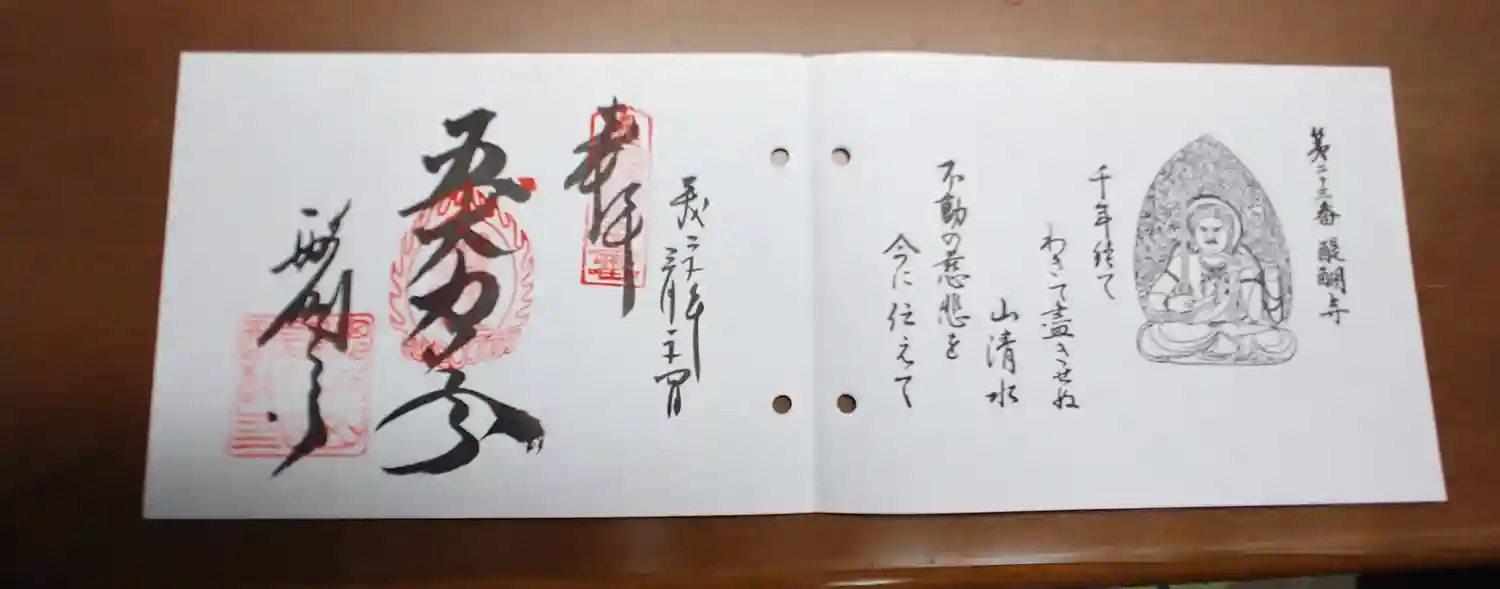 第二十三番 醍醐寺
千年経て
わきて盡きせぬ
山清水
不動の慈悲を
今に伝えて
奉拝
五大力尊
醍醐寺